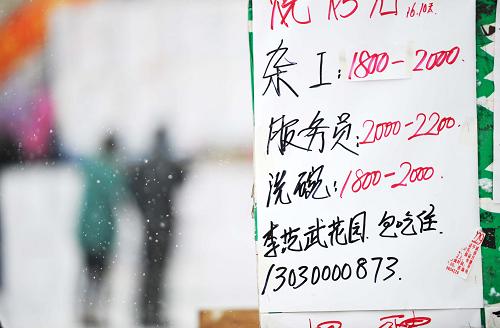 杂工:1800-2000.
服务员:2000-2200.
洗碗:1800-2000.
花园.包吃住.
13030000873.